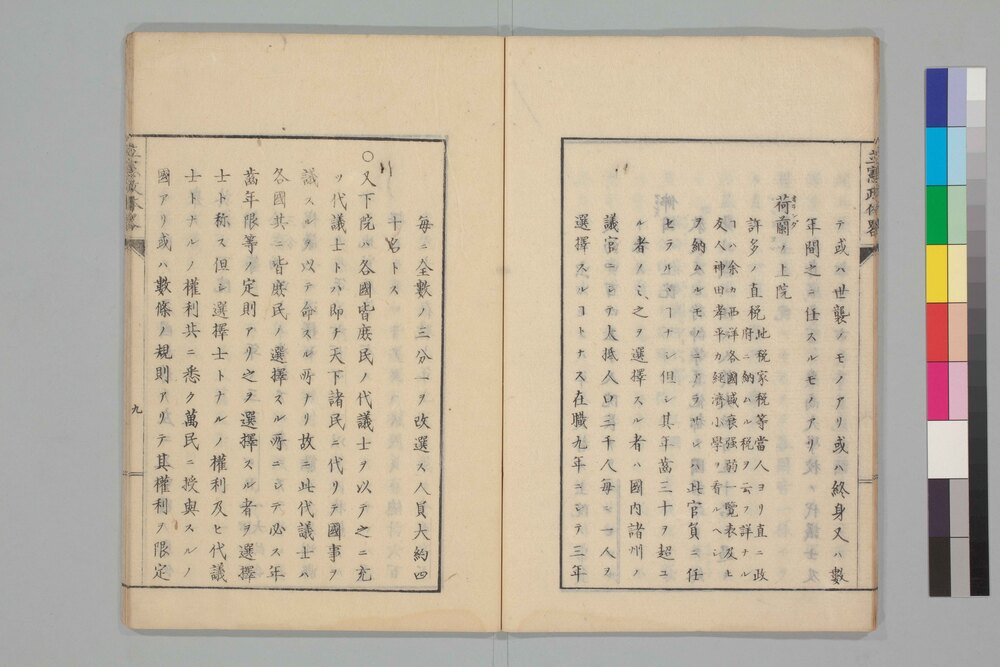 立憲政体略
テ或ハ世襲ノモノアリ或ハ終身又ハ數
年間之ニ任スルモノアリ
荷蘭ノ上院
オランダ
許多ノ直税
地税家税等當人ヨリ直ニ政
府ニ納ハル税ヲ云フ詳ナル
コハ余カ西洋各國盛衰強弱一覽表及ヒ
友人神田孝平カ經濟小學ヲ看ルヘシ
ヲ納ムルモノニアラサレハ此官員ニ任
セラルヽコナシ但シ其年萬三十ヲ超ユ
ル者ノミ之ヲ選擇スル者ハ國内諸州ノ
議官ニシテ大抵人口三千人毎ニ一人ヲ
選擇スルコトナス在職九年ニシテ三年
毎ニ全數ノ三分一ヲ改選ス人員大約四
十名トス
○又下院ハ各國皆庶民ノ代議士ヲ以テ之ニ充
ツ代議士トハ即チ天下諸民ニ代リテ國事ヲ
議スルヲ以テ命スル所ナリ故ニ此代議士ハ
各國共ニ皆庶民ノ選擇スル所ニシテ必ス年
萬年限等ノ定則アリ之ヲ選擇スル者ヲ選擇
士ト称ス但シ選擇士トナルノ權利及ヒ代議
士トナルノ權利共ニ悉ク萬民ニ授與スルノ
國アリ或ハ數條ノ規則アリテ其權利ヲ限定
九